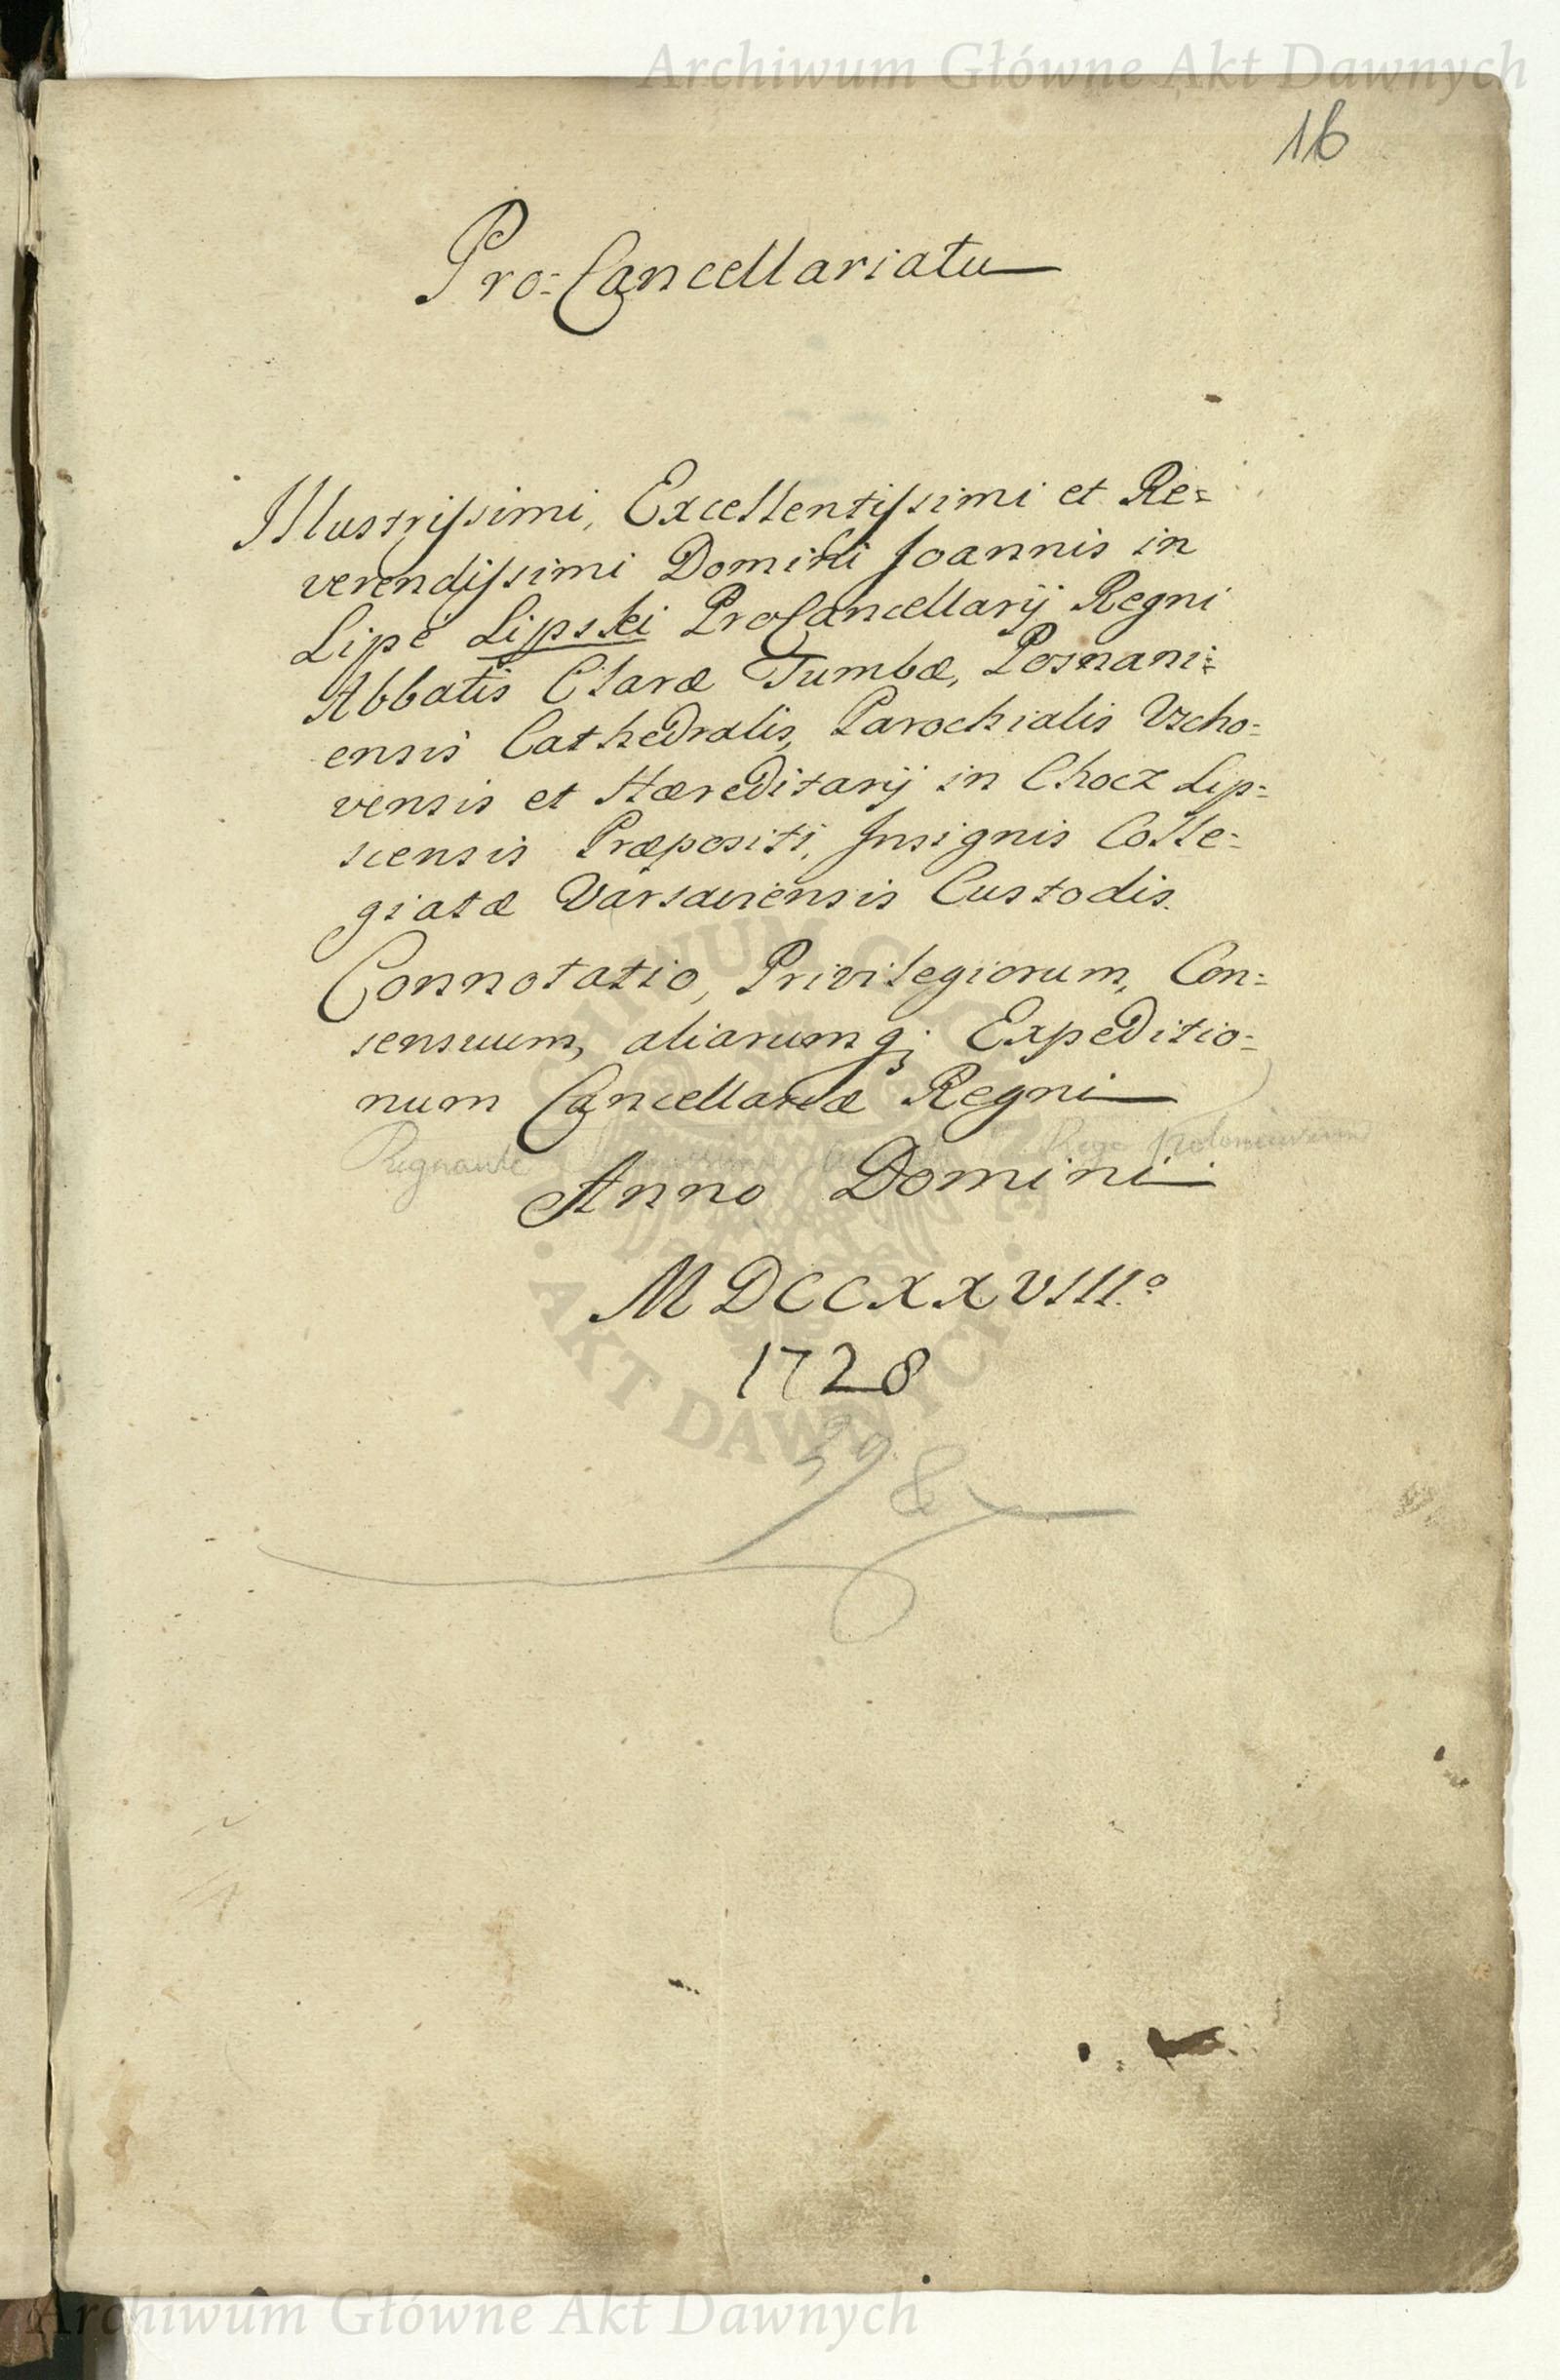 Archiwum Główne Akt Dawnych
16
Pro=Cancellariatu
Illustrissimi, Excellentissimi et Re=
verendissimi Domini Joannis in
Lipe Lipski ProCancellarij Regni
Abbatis Claræ Tumbæ, Posnani=
ensis Cathedralis, Parochialis Vscho=
vensis et Hæreditarij in Chocz Lip=
sciensis Præpositi, Insignis Colle=
giatæ Varsaviensis Custodis.
Connotatio, Privilegiorum, Con=
sensuum, aliarumq; Expeditio=
num Cancellariæ Regni
Regnante Rege Poloniarum
Anno Domini
MDCCXXVIII.º
1728
398
ARCHIWUM GŁÓWNE · AKT DAWNYCH ·
Archiwum Główne Akt Dawnych